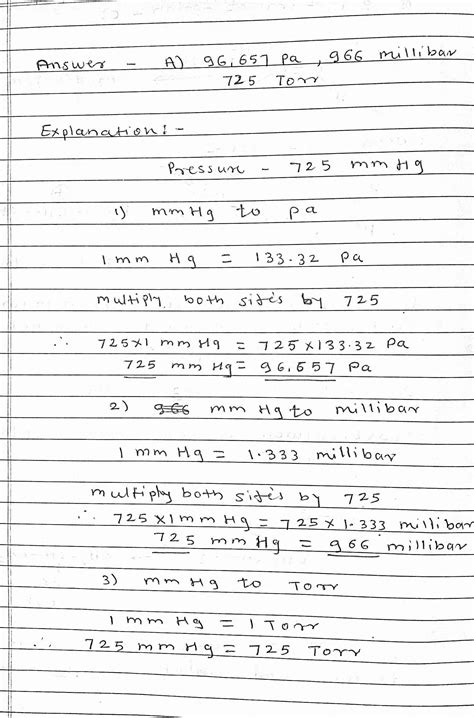 Answer - A) 96,657 Pa, 966 millibar
725 Torr
Explanation: -
Pressure - 725 mm Hg
1) mm Hg to Pa
1 mm Hg = 133.32 Pa
multiply both sites by 725
∴ 725×1 mm Hg = 725×133.32 Pa
725 mm Hg = 96,657 Pa
2) 966 mm Hg to millibar
1 mm Hg = 1.333 millibar
multiply both sites by 725
∴ 725×1 mm Hg = 725 × 1.333 millibar
725 mm Hg = 966 millibar
3) mm Hg to Torr
1 mm Hg = 1 Torr
∴ 725 mm Hg = 725 Torr